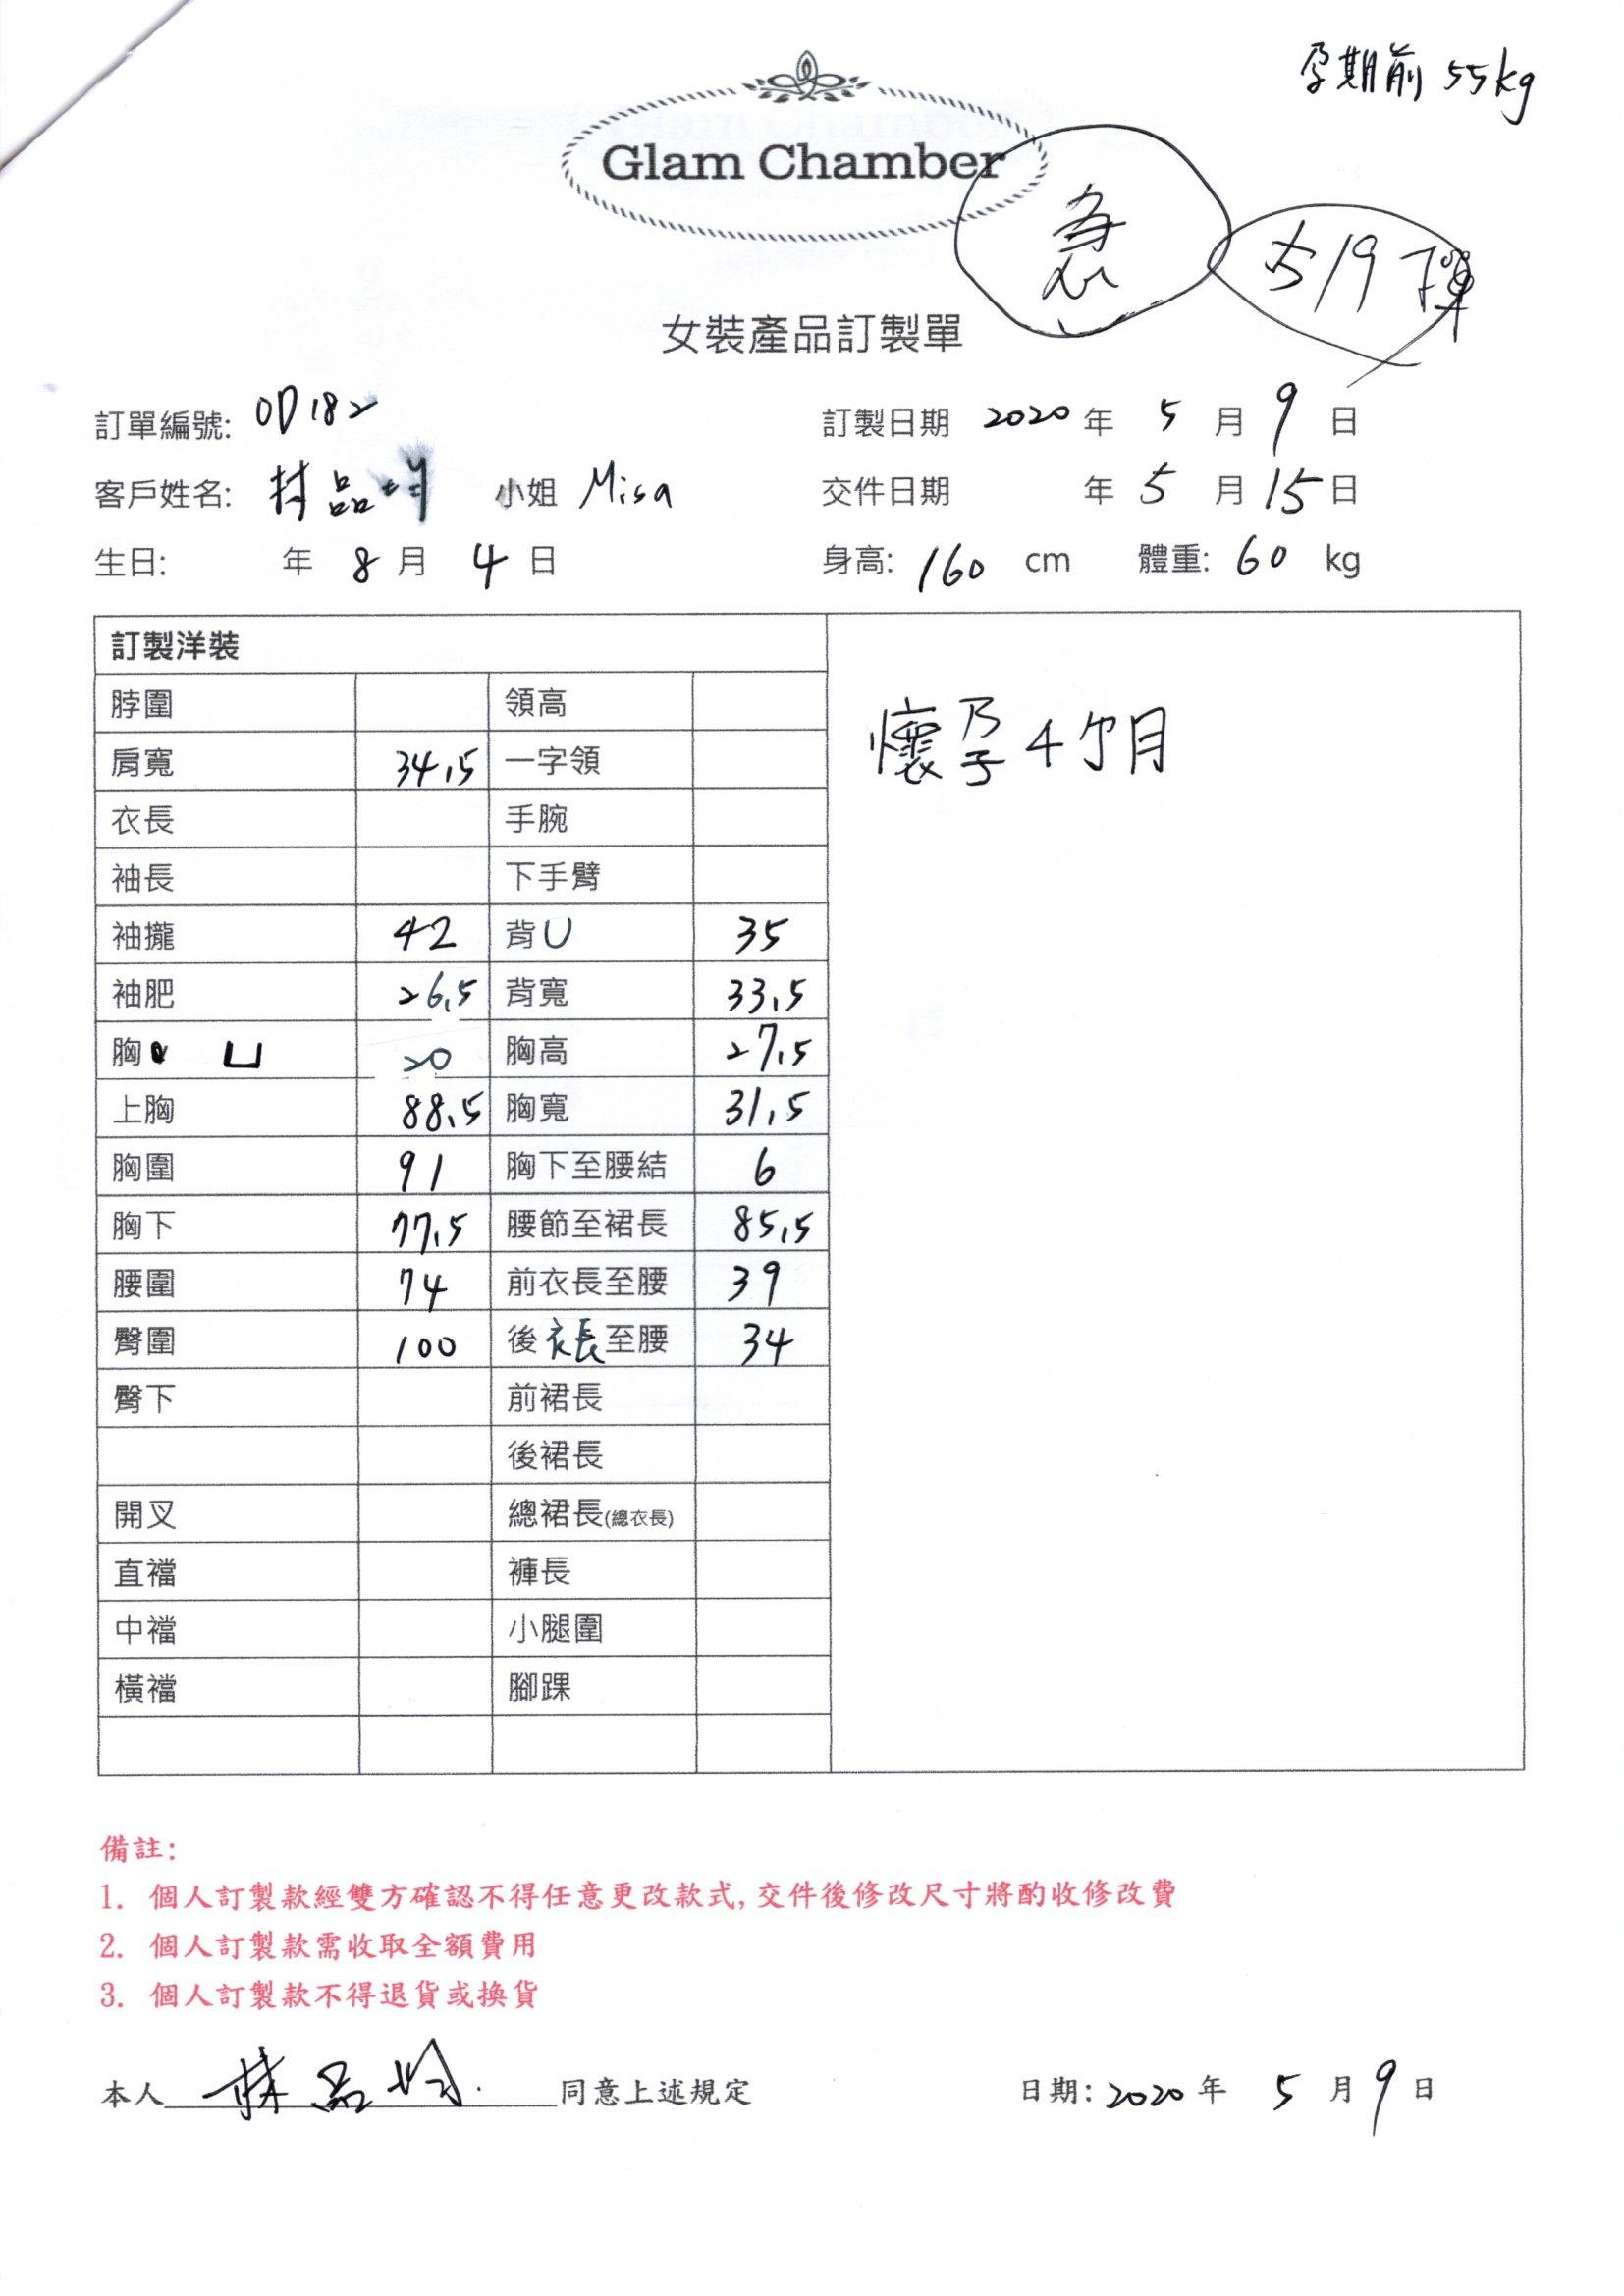 孕期前 55kg
Glam Chamber
急
5/9 下單
女裝產品訂製單
訂單編號: OD182
訂製日期 2020 年 5 月 9 日
客戶姓名: 林品 小姐 Misa
交件日期 年 5 月 15 日
生日: 年 8 月 4 日
身高: 160 cm 體重: 60 kg
訂製洋裝
脖圍 領高
肩寬 34.5 一字領
懷孕4个月
衣長 手腕
袖長 下手臂
袖攏 42 背U 35
袖肥 26.5 背寬 33.5
胸 20 胸高 27.5
上胸 88.5 胸寬 31.5
胸圍 91 胸下至腰結 6
胸下 77.5 腰節至裙長 85.5
腰圍 74 前衣長至腰 39
臀圍 100 後衣長至腰 34
臀下 前裙長
後裙長
開叉 總裙長(總衣長)
直襠 褲長
中襠 小腿圍
橫襠 腳踝
備註:
1. 個人訂製款經雙方確認不得任意更改款式,交件後修改尺寸將酌收修改費
2. 個人訂製款需收取全額費用
3. 個人訂製款不得退貨或換貨
本人 林品均 同意上述規定
日期: 2020 年 5 月 9 日